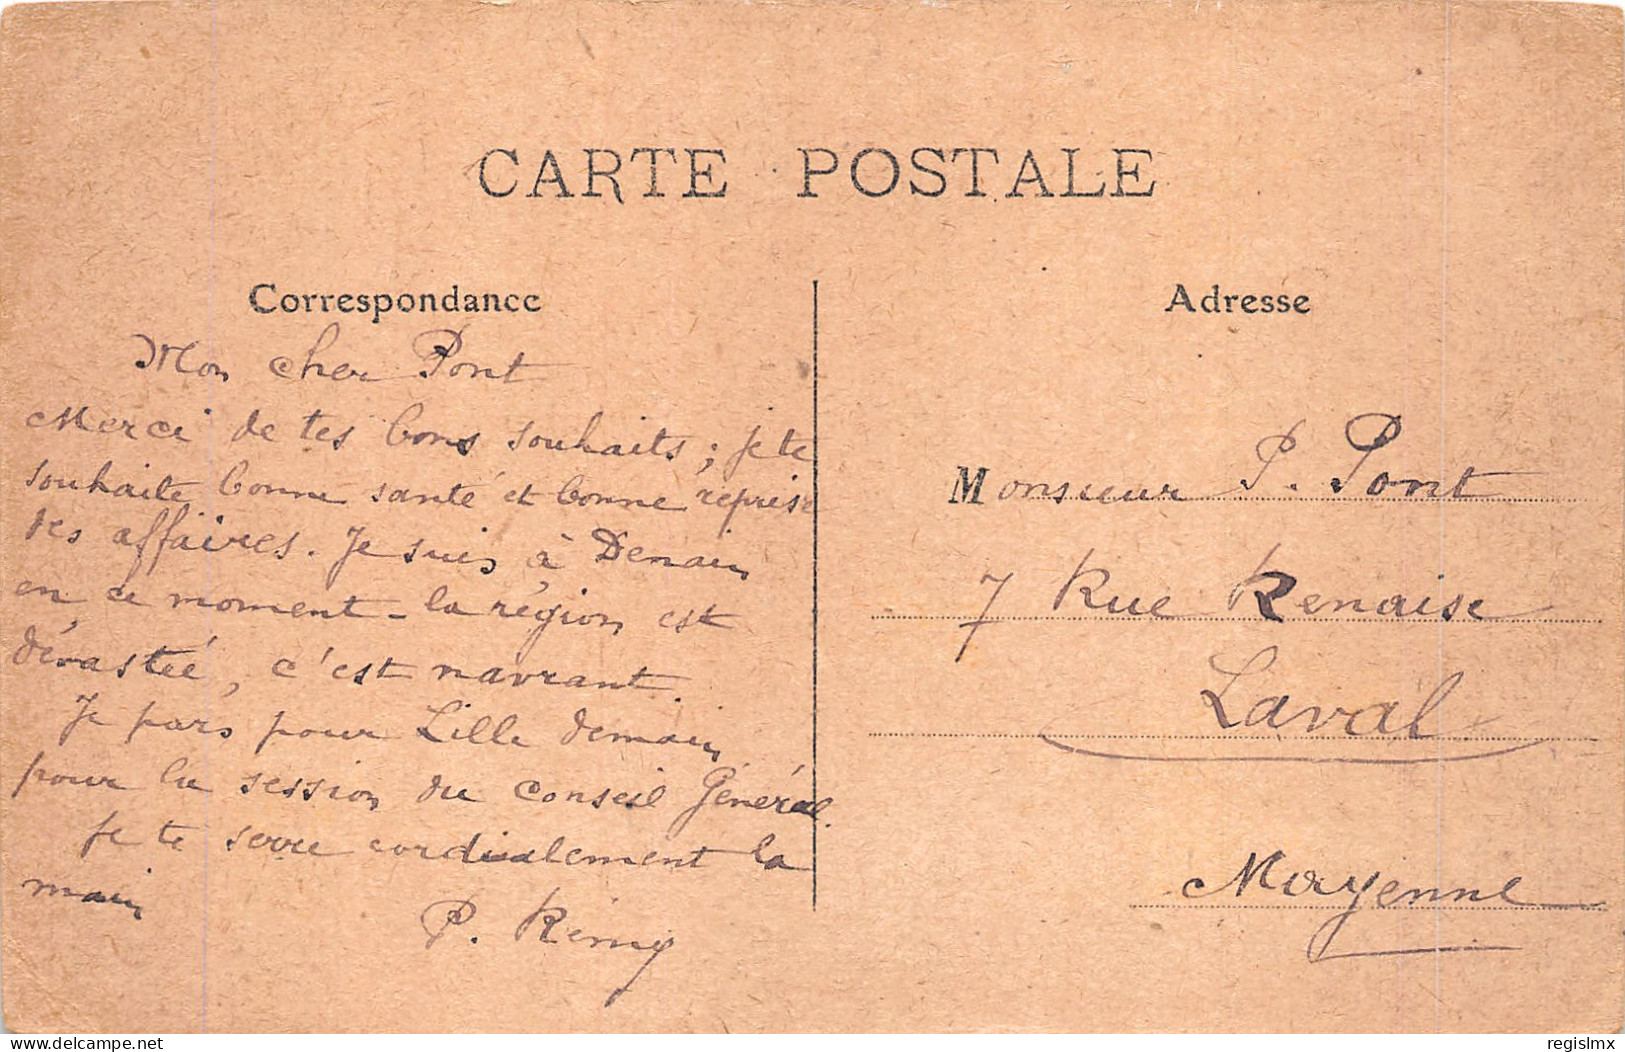 CARTE POSTALE
Correspondance
Mon cher Pont
Merci de tes bons souhaits ; je te
souhaite bonne santé et bonne reprise
des affaires. Je suis à Denain
en ce moment - la région est
dévastée, c'est navrant
Je pars pour Lille demain
pour la session du Conseil Général.
Je te serre cordialement la
main
P. Rémy
Adresse
Monsieur P. Pont
7 Rue Renaise
Laval
Mayenne
delcampe.net
regislmx